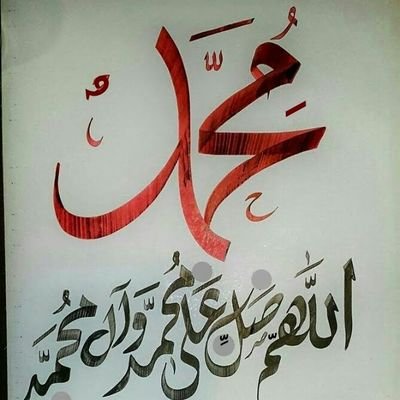 محمد
اللهم صل على محمد وآل محمد